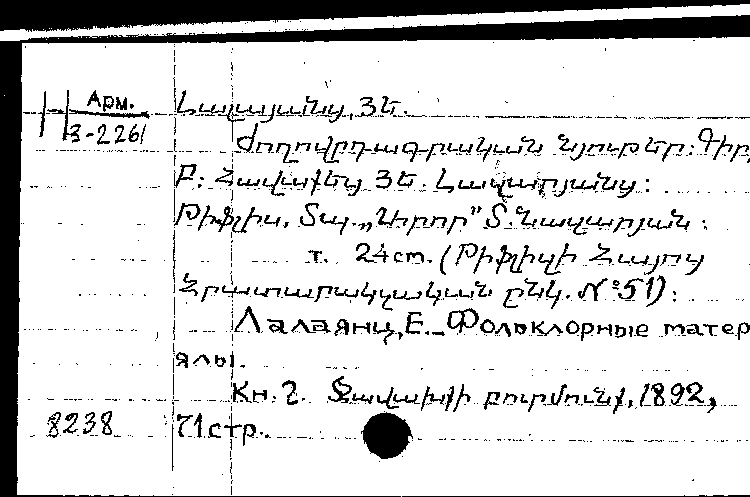 Арм.
Լալայանց, Յե.
3-2261
Ժողովրդագրական նյութեր: Գիր
Բ: Հավաքեց Յե. Լալայանց:
Թիֆլիս, Տպ. „Նոր-Դար" Տ. Նազարյան:
т. 24 cm. (Թիֆլիսի Հայոց
Հրատարակչական ընկ. № 51):
Лалаянц, Е. Фольклорные матер
ялы.
Кн. 2. Ջավախքի բուրմունք, 1892,
8238 71 стр.